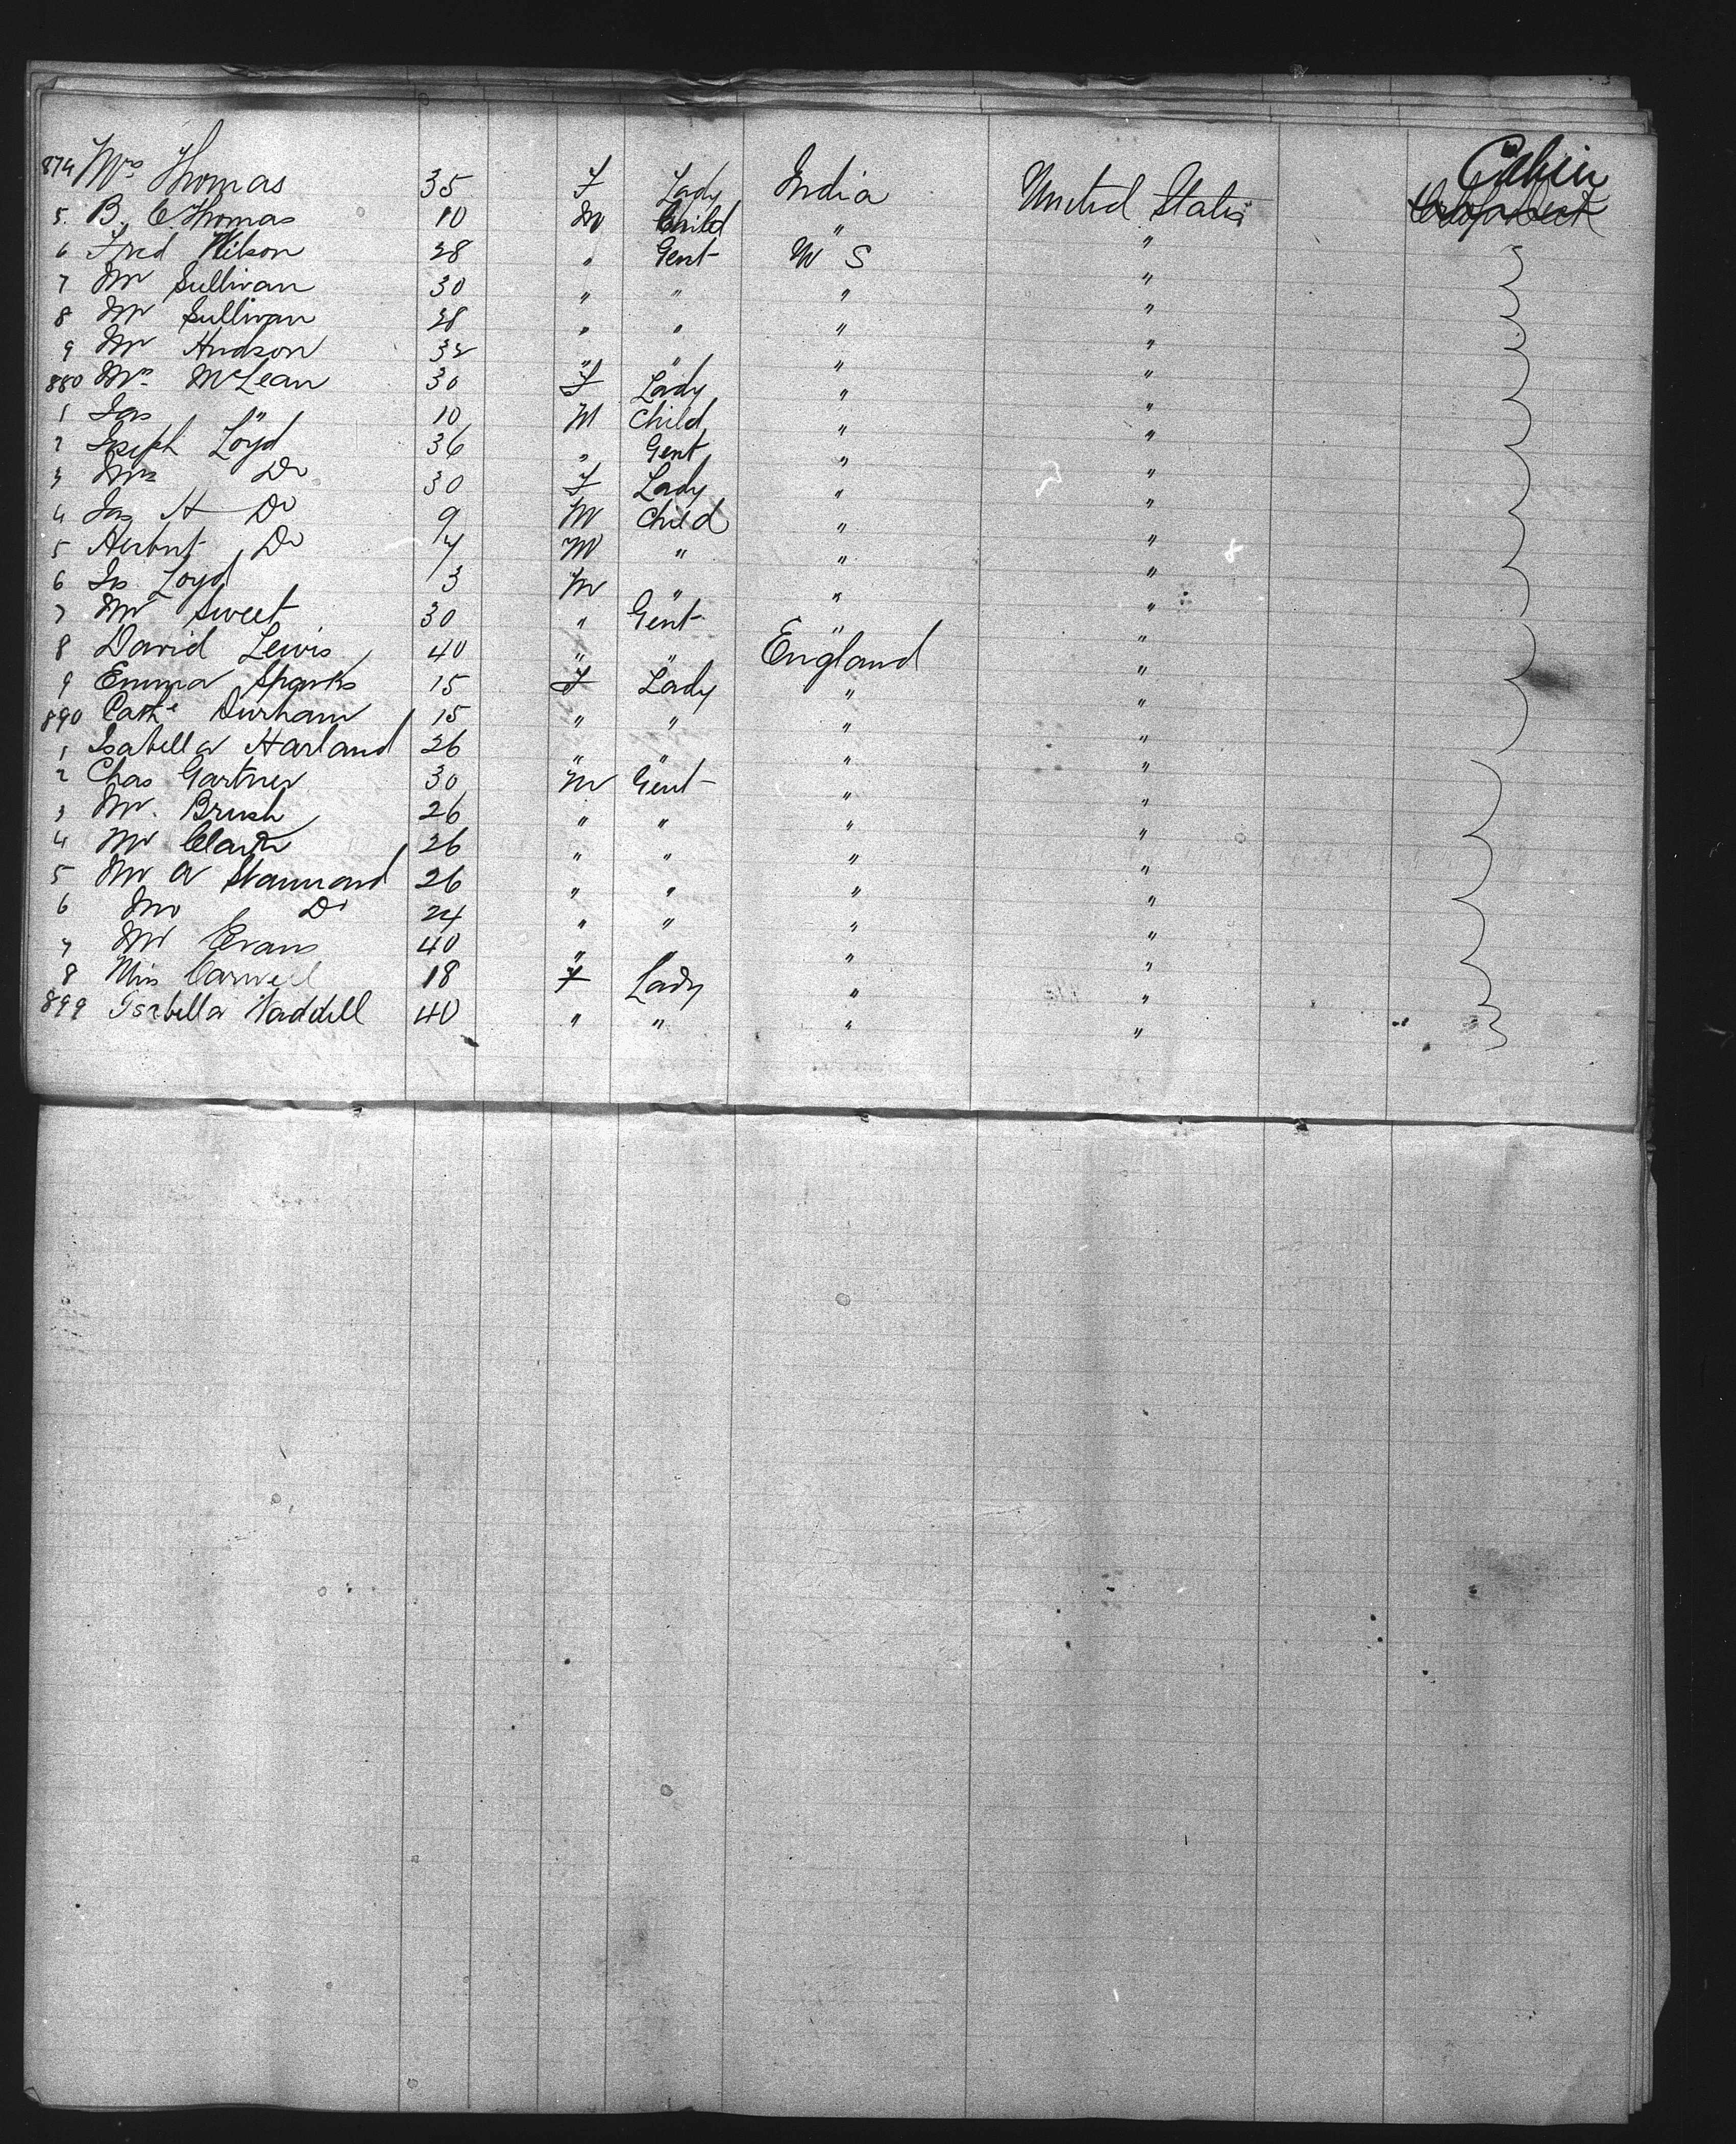 Cabin
874 Mrs Thomas 35 F Lady India United States
5 B. C. Thomas 10 M Child " "
6 Fred Wilson 28 " Gent U S "
7 Mr Sullivan 30 " " " "
8 Mr Sullivan 28 " " " "
9 Mr Hudson 32 " " " "
880 Mrs McLean 30 F Lady " "
1 Jas " 10 M Child " "
2 Joseph Loyd 36 " Gent " "
3 Mrs Do 30 F Lady " "
4 Jas H Do 9 M Child " "
5 Herbert Do 7 M " " "
6 Loyd 3 M " " "
7 Mr Sweet 30 " Gent " "
8 David Lewis 40 " " England "
9 Emma Sparks 15 F Lady " "
890 Cathe Durham 15 " " " "
1 Isabella Harland 26 " " " "
2 Chas Gartner 30 M Gent " "
3 Mr. Brush 26 " " " "
4 Mr Clark 26 " " " "
5 Mr A Stannard 26 " " " "
6 Mr Do 24 " " " "
7 Mr Evans 40 " " " "
8 Miss Carwell 18 F Lady " "
899 Isabella Waddell 40 " " " "